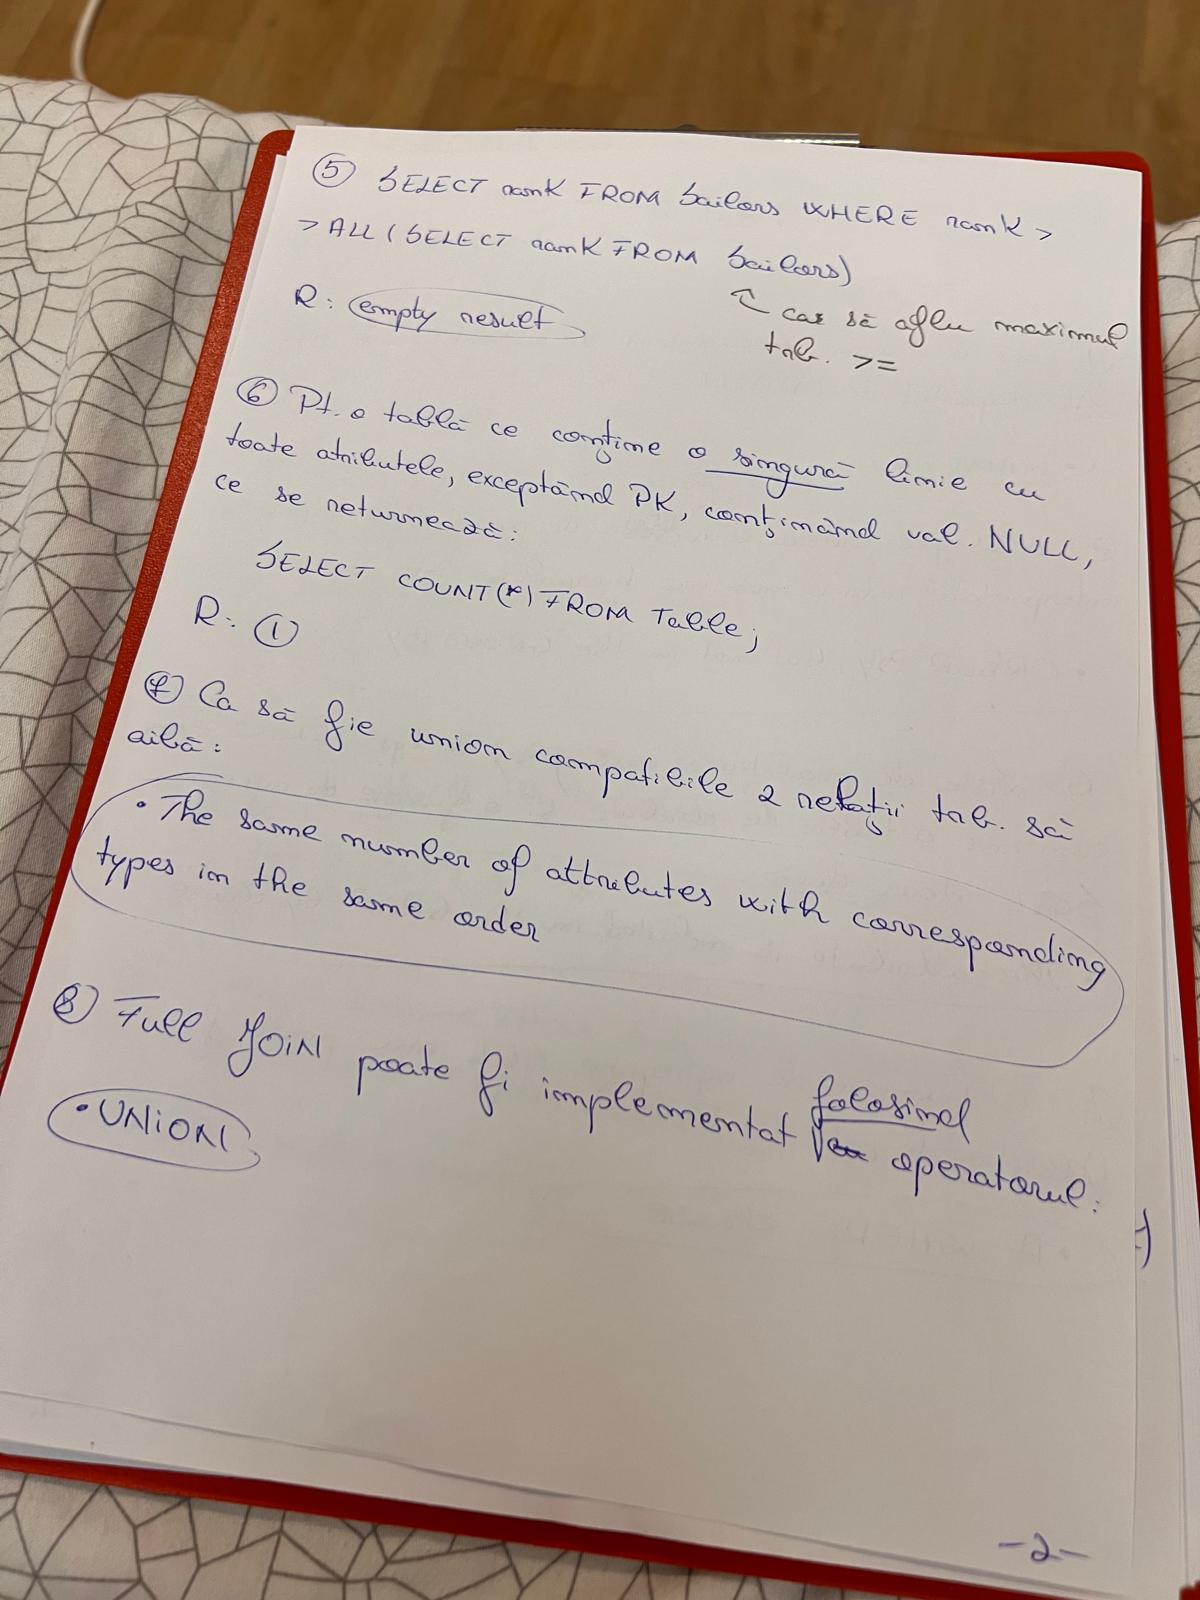 ⑤ SELECT rank FROM Sailors WHERE rank >
> ALL (SELECT rank FROM Sailors)
R: empty result
↖ ca să aflu maximul
trb. >=
⑥ Pt. o tablă ce conține o singură linie cu
toate atributele, exceptând PK, conținând val. NULL,
ce se returnează:
SELECT COUNT(*) FROM Table;
R: ①
⑦ Ca să fie union compatibile 2 relații trb. să
aibă:
• The same number of attributes with corresponding
types in the same order
⑧ Full JOIN poate fi implementat folosind operatorul:
• UNION
-2-